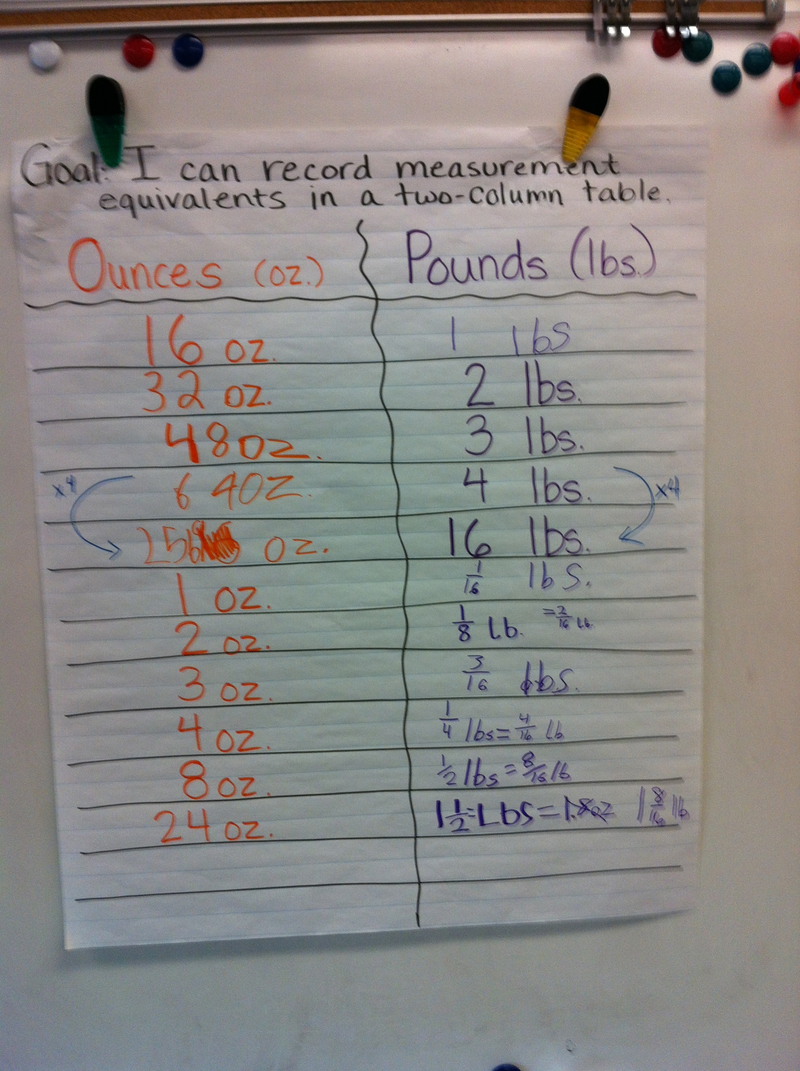 Goal: I can record measurement
equivalents in a two-column table.
Ounces (oz.) Pounds (lbs.)
16 oz. 1 lbs
32 oz. 2 lbs.
48 oz. 3 lbs.
x4 64 oz. 4 lbs. x4
256 oz. 16 lbs.
1 oz. 1/16 lbs.
2 oz. 1/8 Lb. =2/16 Lb.
3 oz. 3/16 lbs.
4 oz. 1/4 lbs=4/16 lb
8 oz. 1/2 lbs=8/16 lb
24 oz. 1 1/2 Lbs= 1 8/16 lb